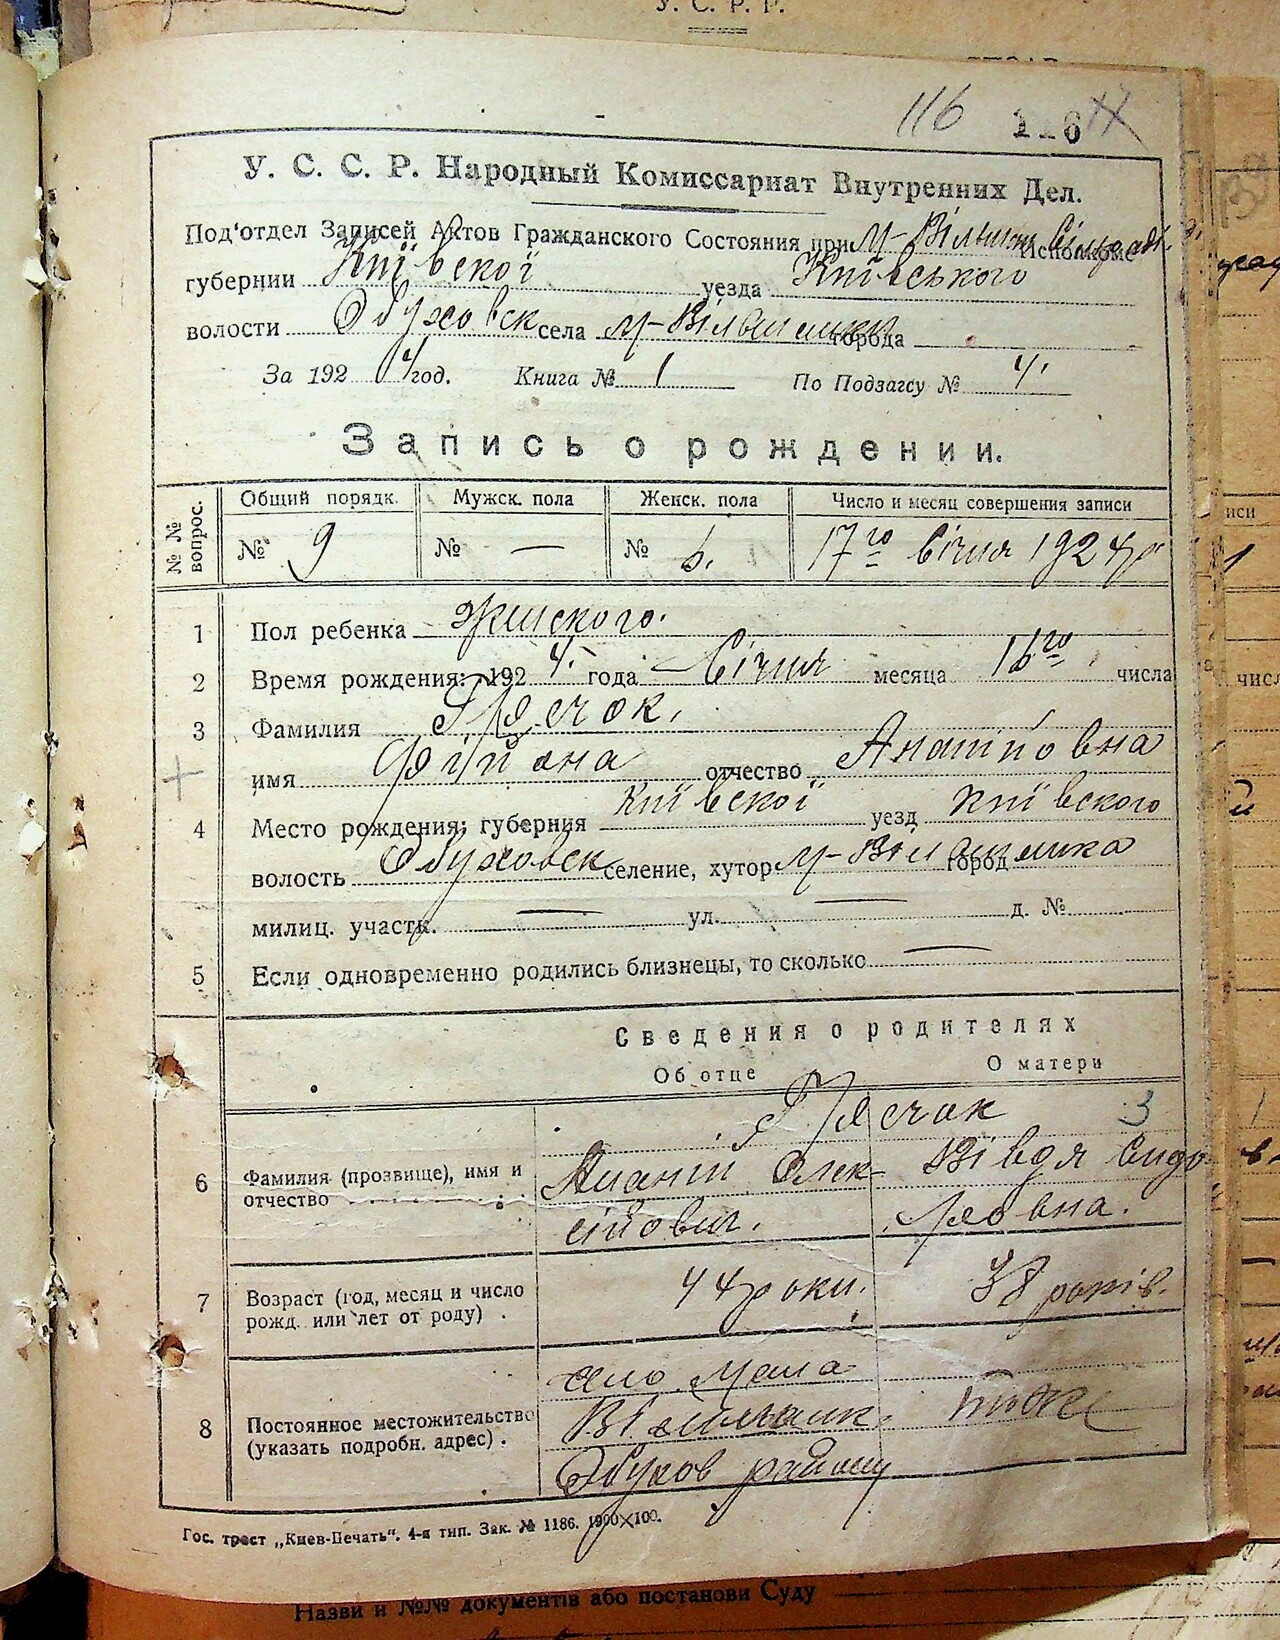 У. С. Р. Р.
116 116
У. С. С. Р. Народный Комиссариат Внутренних Дел.
Под'отдел Записей Актов Гражданского Состояния при м-Вільшан. Сільраді Исполкоме
губернии Київскої уезда Київського
волости Обуховск села м-Вільшанки города
За 192 4 год. Книга № 1 По Подзагсу № 4.
Запись о рождении.
№ № вопрос. Общий порядк. Мужск. пола Женск. пола Число и месяц совершения записи
№ 9 № — № 6. 17го Січня 1924 р
1 Пол ребенка Женского.
2 Время рождения: 192 4. года Січня месяца 16го числа
3 Фамилия Грячок.
имя отчество
4 Место рождения: губерния Київскої уезд Київского
волость Обуховск селение, хутор м-Вільшанка город
милиц. участк. — ул. — д. №
5 Если одновременно родились близнецы, то сколько —
Сведения о родителях
Об отце О матери
Грячок 3
6 Фамилия (прозвище), имя и Ананій Олек- Вівдя Сидо
отчество сійович. ровна.
7 Возраст (год, месяц и число 44 роки. 38 років.
рожд. или лет от роду) .
село Мала
8 Постоянное местожительство Вільшанк. тоже
(указать подробн. адрес) . Обухов району
Гос. трест „Киев-Печать“. 4-я тип. Зак. № 1186. 1900×100.
Назви й №№ документів або постанови Суду